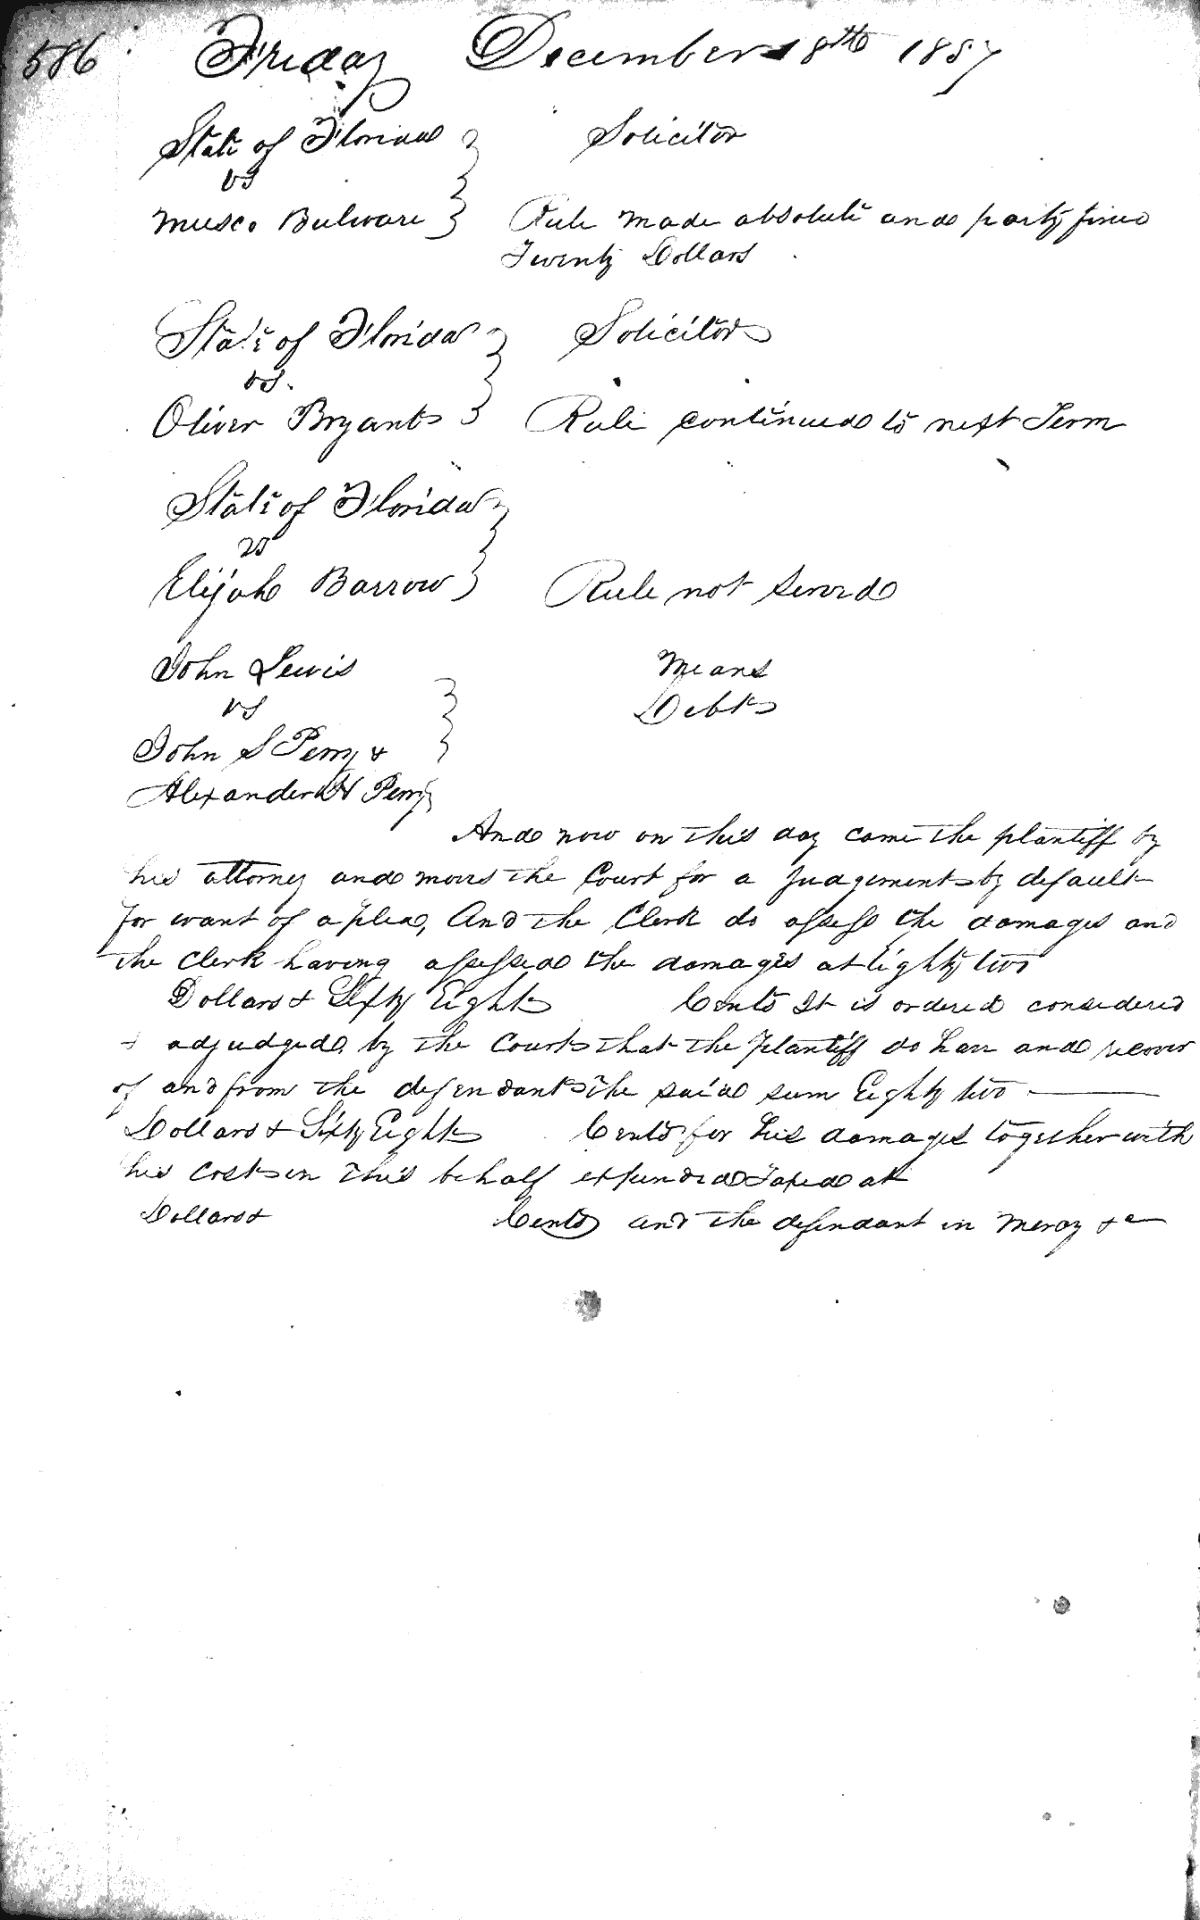 586 Friday December 18th 1857
State of Florida Solicitor
vs
Musco Bulware Rule made absolute and party fined
Twenty Dollars
State of Florida Solicitor
vs.
Oliver Bryant Rule continued to next Term
State of Florida
vs
Elijah Barrow Rule not served
John Lewis Means
vs Debt
John S Perry &
Alexander H Perry
And now on this day came the plantiff by
his attorney and moves the Court for a Judgement by default
for want of a plea, And the Clerk do assess the damages and
the clerk having assessed the damages at Eighty two
Dollars & Sixty Eight Cents It is ordered considered
& adjudged by the Court that the plantiff do have and recover
of and from the defendant the said sum Eighty two
Dollars & Sixty Eight Cents for his damages together with
his cost in this behalf expended Taxed at
Dollars & Cents and the defendant in mercy &c